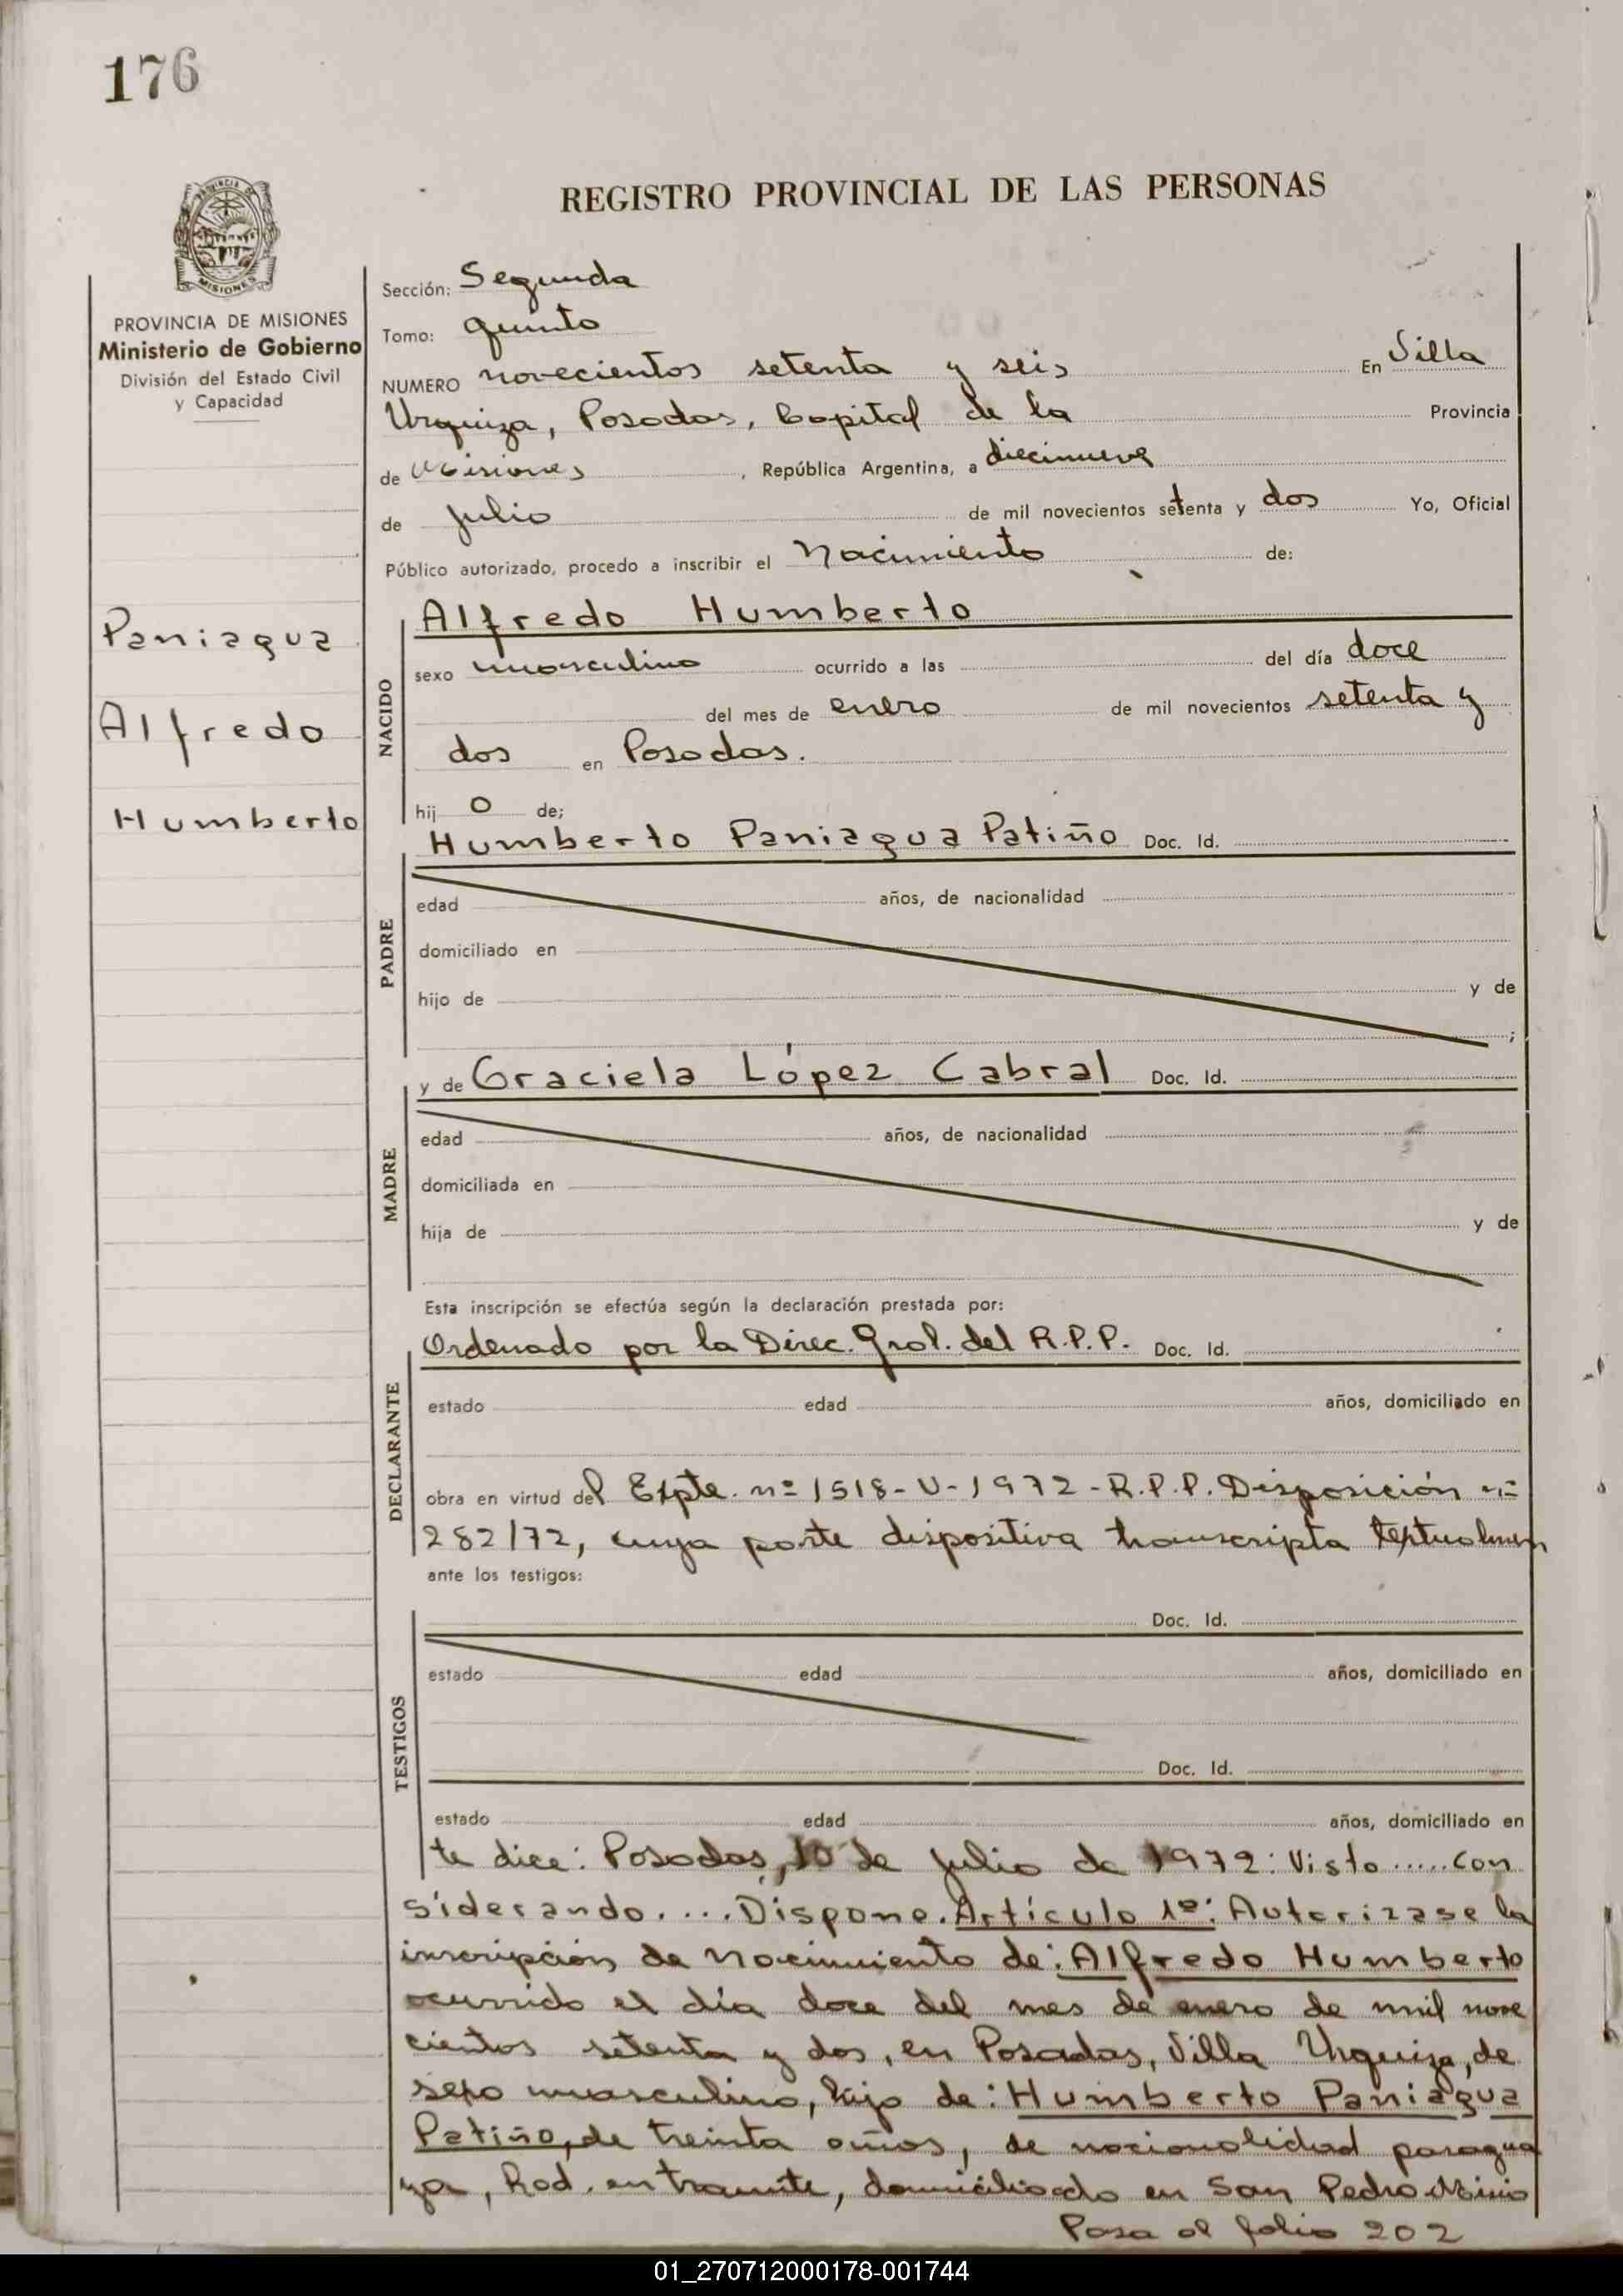 176
PROVINCIA DE MISIONES
REGISTRO PROVINCIAL DE LAS PERSONAS
PROVINCIA DE MISIONES
Ministerio de Gobierno
División del Estado Civil
y Capacidad
Paniagua
Alfredo
Humberto
Sección: Segunda
Tomo: quinto
NUMERO novecientos setenta y seis En Villa
Urquiza, Posadas, Capital de la Provincia
de Misiones, República Argentina, a diecinueve
de julio de mil novecientos setenta y dos Yo, Oficial
Público autorizado, procedo a inscribir el Nacimiento de:
NACIDO
Alfredo Humberto
sexo masculino ocurrido a las del día doce
del mes de enero de mil novecientos setenta y
dos en Posadas.
hij o de;
PADRE
Humberto Paniagua Patiño Doc. Id.
edad años, de nacionalidad
domiciliado en
hijo de y de
;
MADRE
y de Graciela López Cabral Doc. Id.
edad años, de nacionalidad
domiciliada en
hija de y de
Esta inscripción se efectúa según la declaración prestada por:
DECLARANTE
Ordenado por la Direc. Gral. del R.P.P. Doc. Id.
estado edad años, domiciliado en
obra en virtud del Expte. nº 1518-V-1972-R.P.P. Disposición nº
282/72, cuya parte dispositiva transcripta textualmen
ante los testigos:
TESTIGOS
Doc. Id.
estado edad años, domiciliado en
Doc. Id.
estado edad años, domiciliado en
te dice: Posadas, 10 de julio de 1972: Visto.....Con
siderando....Dispone. Artículo 1º: Autorizase la
inscripción de Nacimiento de: Alfredo Humberto
ocurrido el día doce del mes de enero de mil nove
cientos setenta y dos, en Posadas, Villa Urquiza, de
sexo masculino, hijo de: Humberto Paniagua
Patiño, de treinta años, de nacionalidad paragua
ya, Rad. en tramite, domiciliado en San Pedro Misio
Pasa al folio 202
01_270712000178-001744